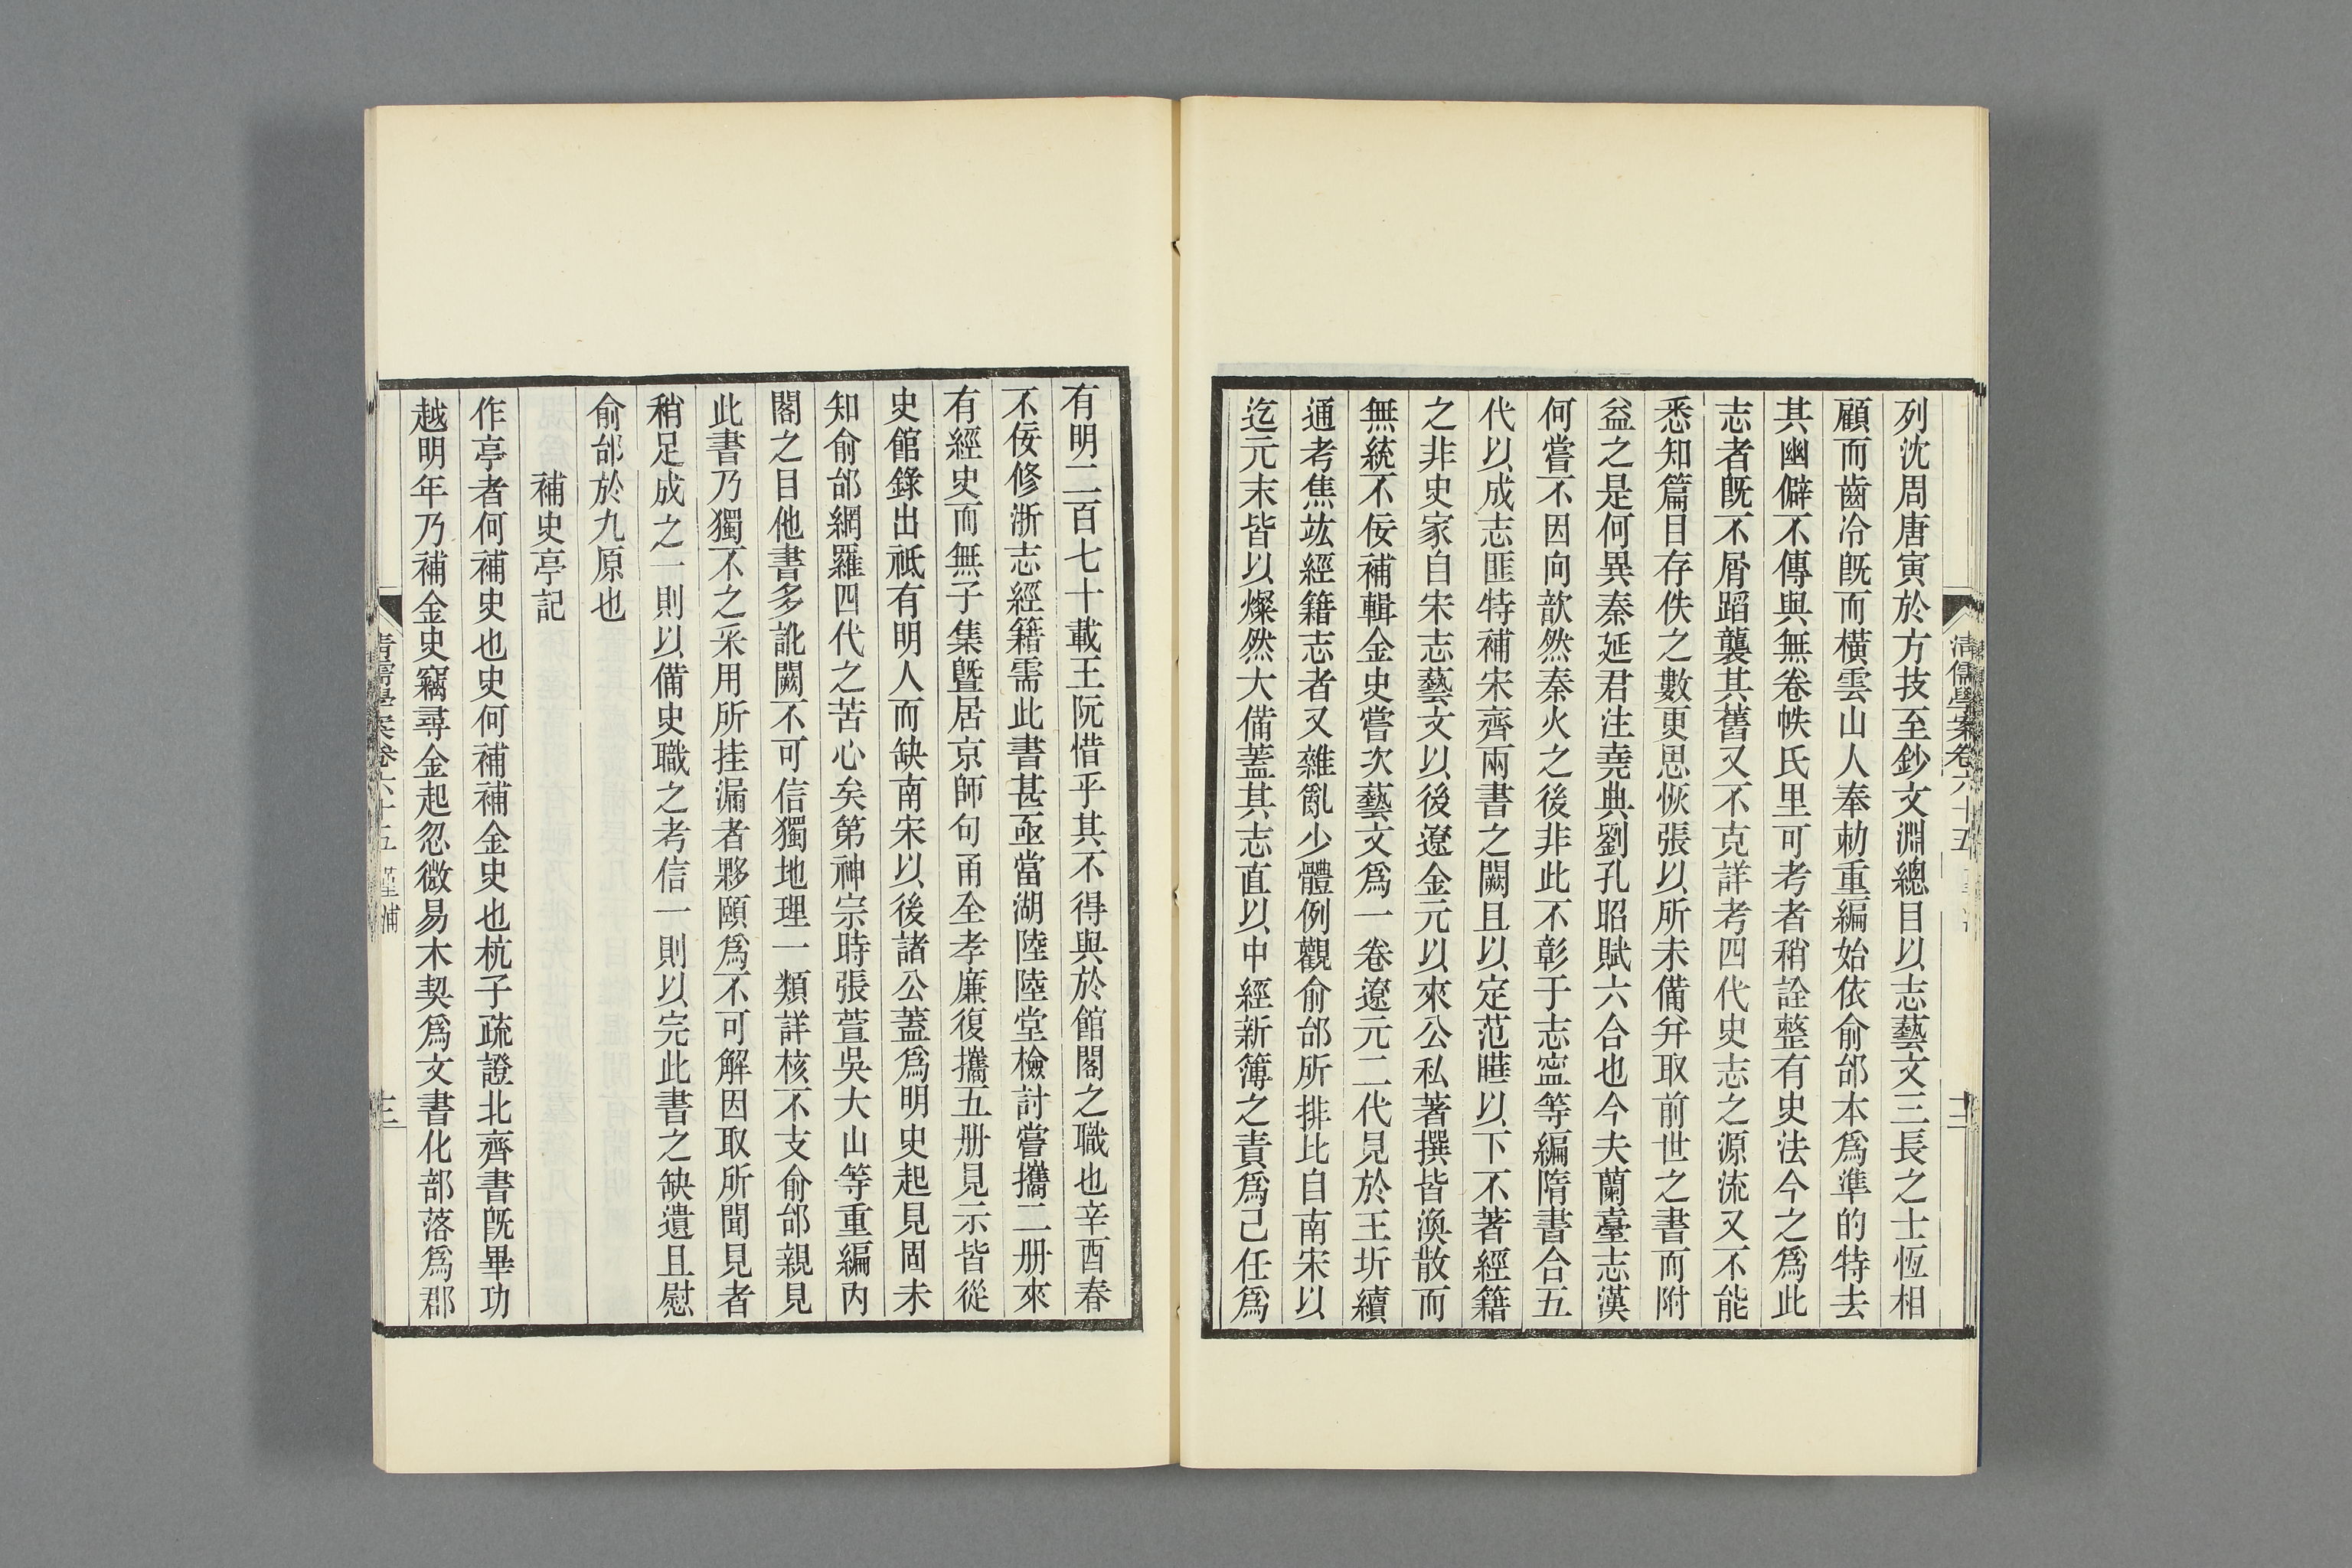 清儒學案卷六十五
十二
列沈周唐寅於方技至鈔文淵總目以志藝文三長之士恆相
顧而齒冷旣而橫雲山人奉勅重編始依俞邰本爲準的特去
其幽僻不傳與無卷帙氏里可考者稍詮整有史法今之爲此
志者旣不屑蹈襲其舊又不克詳考四代史志之源流又不能
悉知篇目存佚之數更思恢張以所未備幷取前世之書而附
益之是何異秦延君注堯典劉孔昭賦六合也今夫蘭臺志漢
何嘗不因向歆然秦火之後非此不彰于志寍等編隋書合五
代以成志匪特補宋齊兩書之闕且以定范曄以下不著經籍
之非史家自宋志藝文以後遼金元以來公私著撰皆渙散而
無統不佞補輯金史嘗次藝文爲一卷遼元二代見於王圻續
通考焦竑經籍志者又雜亂少體例觀俞邰所排比自南宋以
迄元末皆以燦然大備蓋其志直以中經新簿之責爲己任爲
有明二百七十載王阮惜乎其不得與於館閣之職也辛酉春
不佞修浙志經籍需此書甚亟當湖陸陸堂檢討嘗攜二册來
有經史而無子集曁居京師句甬全孝廉復攜五册見示皆從
史館錄出祗有明人而缺南宋以後諸公蓋爲明史起見固未
知俞邰網羅四代之苦心矣第神宗時張萱吳大山等重編內
閣之目他書多訛闕不可信獨地理一類詳核不支俞邰親見
此書乃獨不之采用所挂漏者夥頤爲不可解因取所聞見者
稍足成之一則以備史職之考信一則以完此書之缺遺且慰
俞邰於九原也
補史亭記
作亭者何補史也史何補補金史也杭子疏證北齊書旣畢功
越明年乃補金史竊尋金起忽微易木契爲文書化部落爲郡
清儒學案卷六十五 堇浦